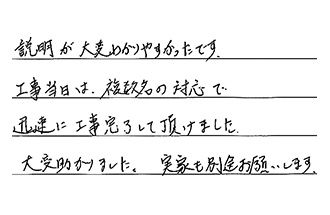 説明が大変わかりやすかったです。
工事当日は、複数名の対応で
迅速に工事完了して頂けました。
大変助かりました。実家も別途お願いします。